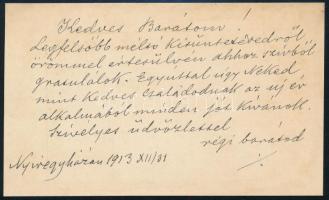 Kedves Barátom!
Legfelsőbb méltó kitüntetésedről
örömmel értesülvén ahhoz szívből
gratulálok. Egyúttal úgy Neked
mint kedves Családodnak az új év
alkalmából minden jót kívánok.
Szívélyes üdvözlettel
régi barátod
Nyíregyházán 1913 XII/31